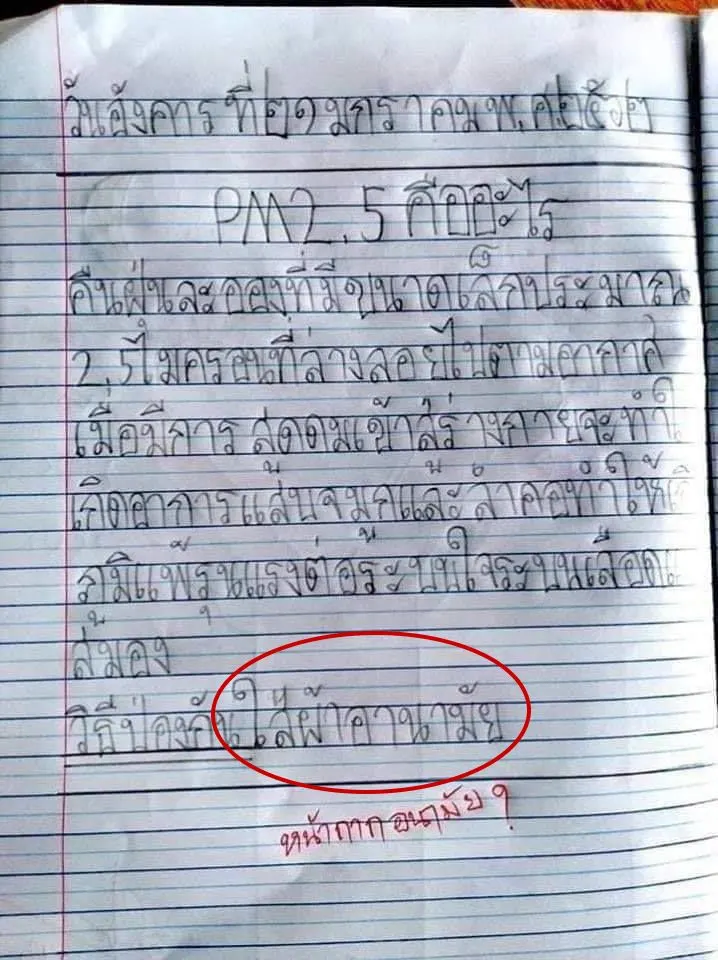 วันอังคาร ที่ ๒๑ มกราคม พ.ศ.๒๕๖๒
PM2.5 คืออะไร
คืนฝุ่นละอองที่มีขนาดเล็กประมาณ
2.5ไมครอนที่ล่างลอยไปตามอากาศ
เมื่อมีการ สูดดมเข้าสู่ร่างกายจะทำใ
เกิดอาการแสบจมูกและลำคอทำให้เ
ภูมิแพ้รุนแรงต่อระบบใจระบบเลือดแ
สมอง
วิธีป่องกันใส่ผ้าอานามัย
หน้ากากอนามัย ?